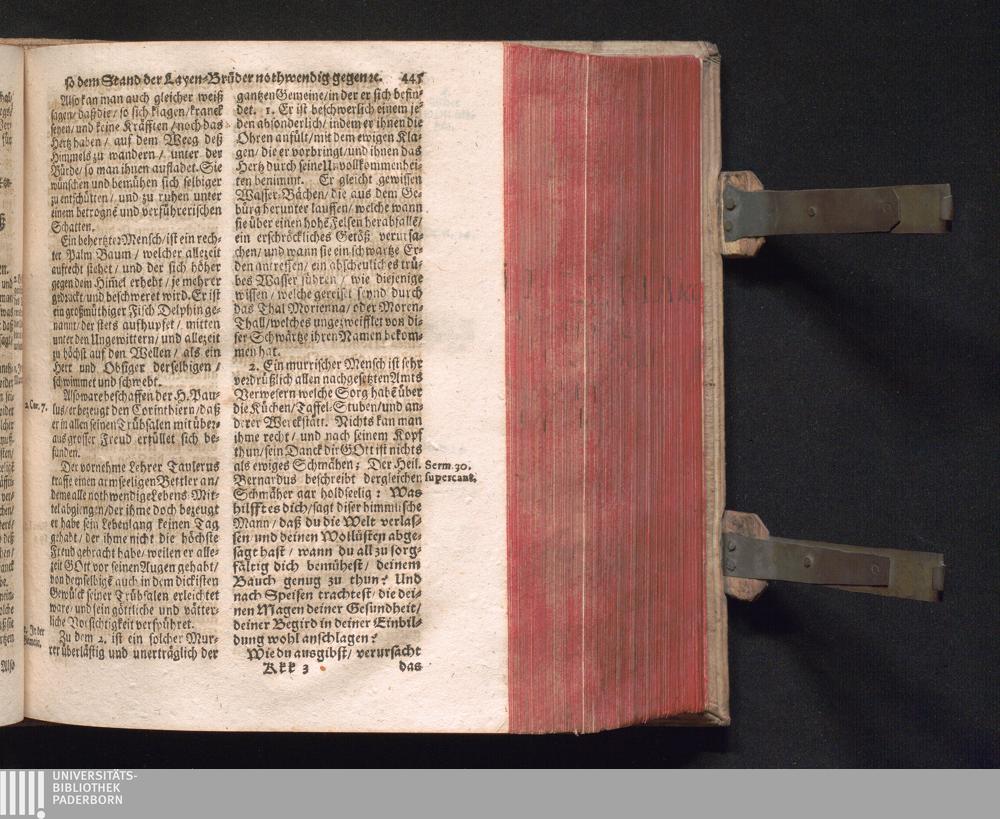 so dem Stand der Layen-Brüder nothwendig gegen ꝛc. 445
Also kan man auch gleicher weiß
sagen/ daß die/ so sich klagen/ kranck
seyen/ und keine Kräfften/ noch das
Hertz haben/ auf dem Weeg deß
Himmels zu wandern/ unter der
Bürde/ so man ihnen aufladet. Sie
wünschen und bemühen sich selbiger
zu entschütten/ und zu ruhen unter
einem betrognē und verführerischen
Schatten.
Ein behertzter Mensch/ ist ein rech-
ter Palm Baum/ welcher allezeit
aufrecht stehet/ und der sich höher
gegen dem Him̄el erhebt/ je mehr er
gedruckt/ und beschweret wird. Er ist
ein großmüthiger Fisch Delphin ge-
nannt/ der stets aufhupfet/ mitten
unter den Ungewittern/ und allezeit
zu höchst auf den Wellen/ als ein
Herr und Obsiger derselbigen/
schwimmet und schwebt.
Also ware beschaffen der H. Pau-
2. Cor. 7.
lus/ er bezeugt den Corinthiern/ daß
er in allen seinen Trübsalen mit über-
aus grosser Freud erfüllet sich be-
funden.
Der vornehme Lehrer Taulerus
traffe einen armseeligen Bettler an/
deme alle nothwendige Lebens-Mit-
tel abgiengen/ der ihme doch bezeugt
er habe sein Lebenlang keinen Tag
gehabt/ der ihme nicht die höchste
Freud gebracht habe/ weilen er alle-
zeit GOtt vor seinen Augen gehabt/
von demselbigē auch in dem dickisten
Gewülck seiner Trübsalen erleichtet
ware/ und sein göttliche und vätter-
liche Vorsichtigkeit verspühret.
Zu dem 2. ist ein solcher Mur-
rer überlästig und unerträglich der
gantzen Gemeine/ in der er sich befin-
det. 1. Er ist beschwerlich einem je-
den absonderlich/ indem er ihnen die
Ohren anfült/ mit dem ewigen Kla-
gen/ die er vorbringt/ und ihnen das
Hertz durch seine Unvollkommenhei-
ten benimmt. Er gleicht gewissen
Wasser-Bächen/ die aus dem Ge-
bürg herunter lauffen/ welche wann
sie über einen hohē Felsen herabfallē/
ein erschröckliches Getöß verursa-
chen/ und wann sie ein schwartze Er-
den antreffen/ ein abscheuliches trü-
bes Wasser führen/ wie diejenige
wissen/ welche gereiset seynd durch
das Thal Morienna/ oder Moren-
Thall/ welches ungezweifflet von di-
ser Schwärtze ihren Namen bekom-
men hat.
2. Ein murrischer Mensch ist sehr
verdrüßlich allen nachgesetzten Amts
Verwesern welche Sorg habē über
die Küchen/ Taffel-Stuben/ und an-
derer Werckstätt. Nichts kan man
ihme recht/ und nach seinem Kopf
thun/ sein Danck dir GOtt ist nichts
als ewiges Schmähen; Der Heil.
Serm. 30.
super cant.
Bernardus beschreibt dergleichen
Schmäher gar holdseelig: Was
hilfft es dich/ sagt diser himmlische
Mann/ daß du die Welt verlas-
sen und deinen Wollüsten abge-
sagt hast/ wann du all zu sorg-
fältig dich bemühest/ deinem
Bauch genug zu thun? Und
nach Speisen trachtest/ die dei-
nen Magen deiner Gesundheit/
deiner Begird in deiner Einbil-
dung wohl anschlagen?
Wie du ausgibst/ verursacht
Kkk 3
das
UNIVERSITÄTS-
BIBLIOTHEK
PADERBORN